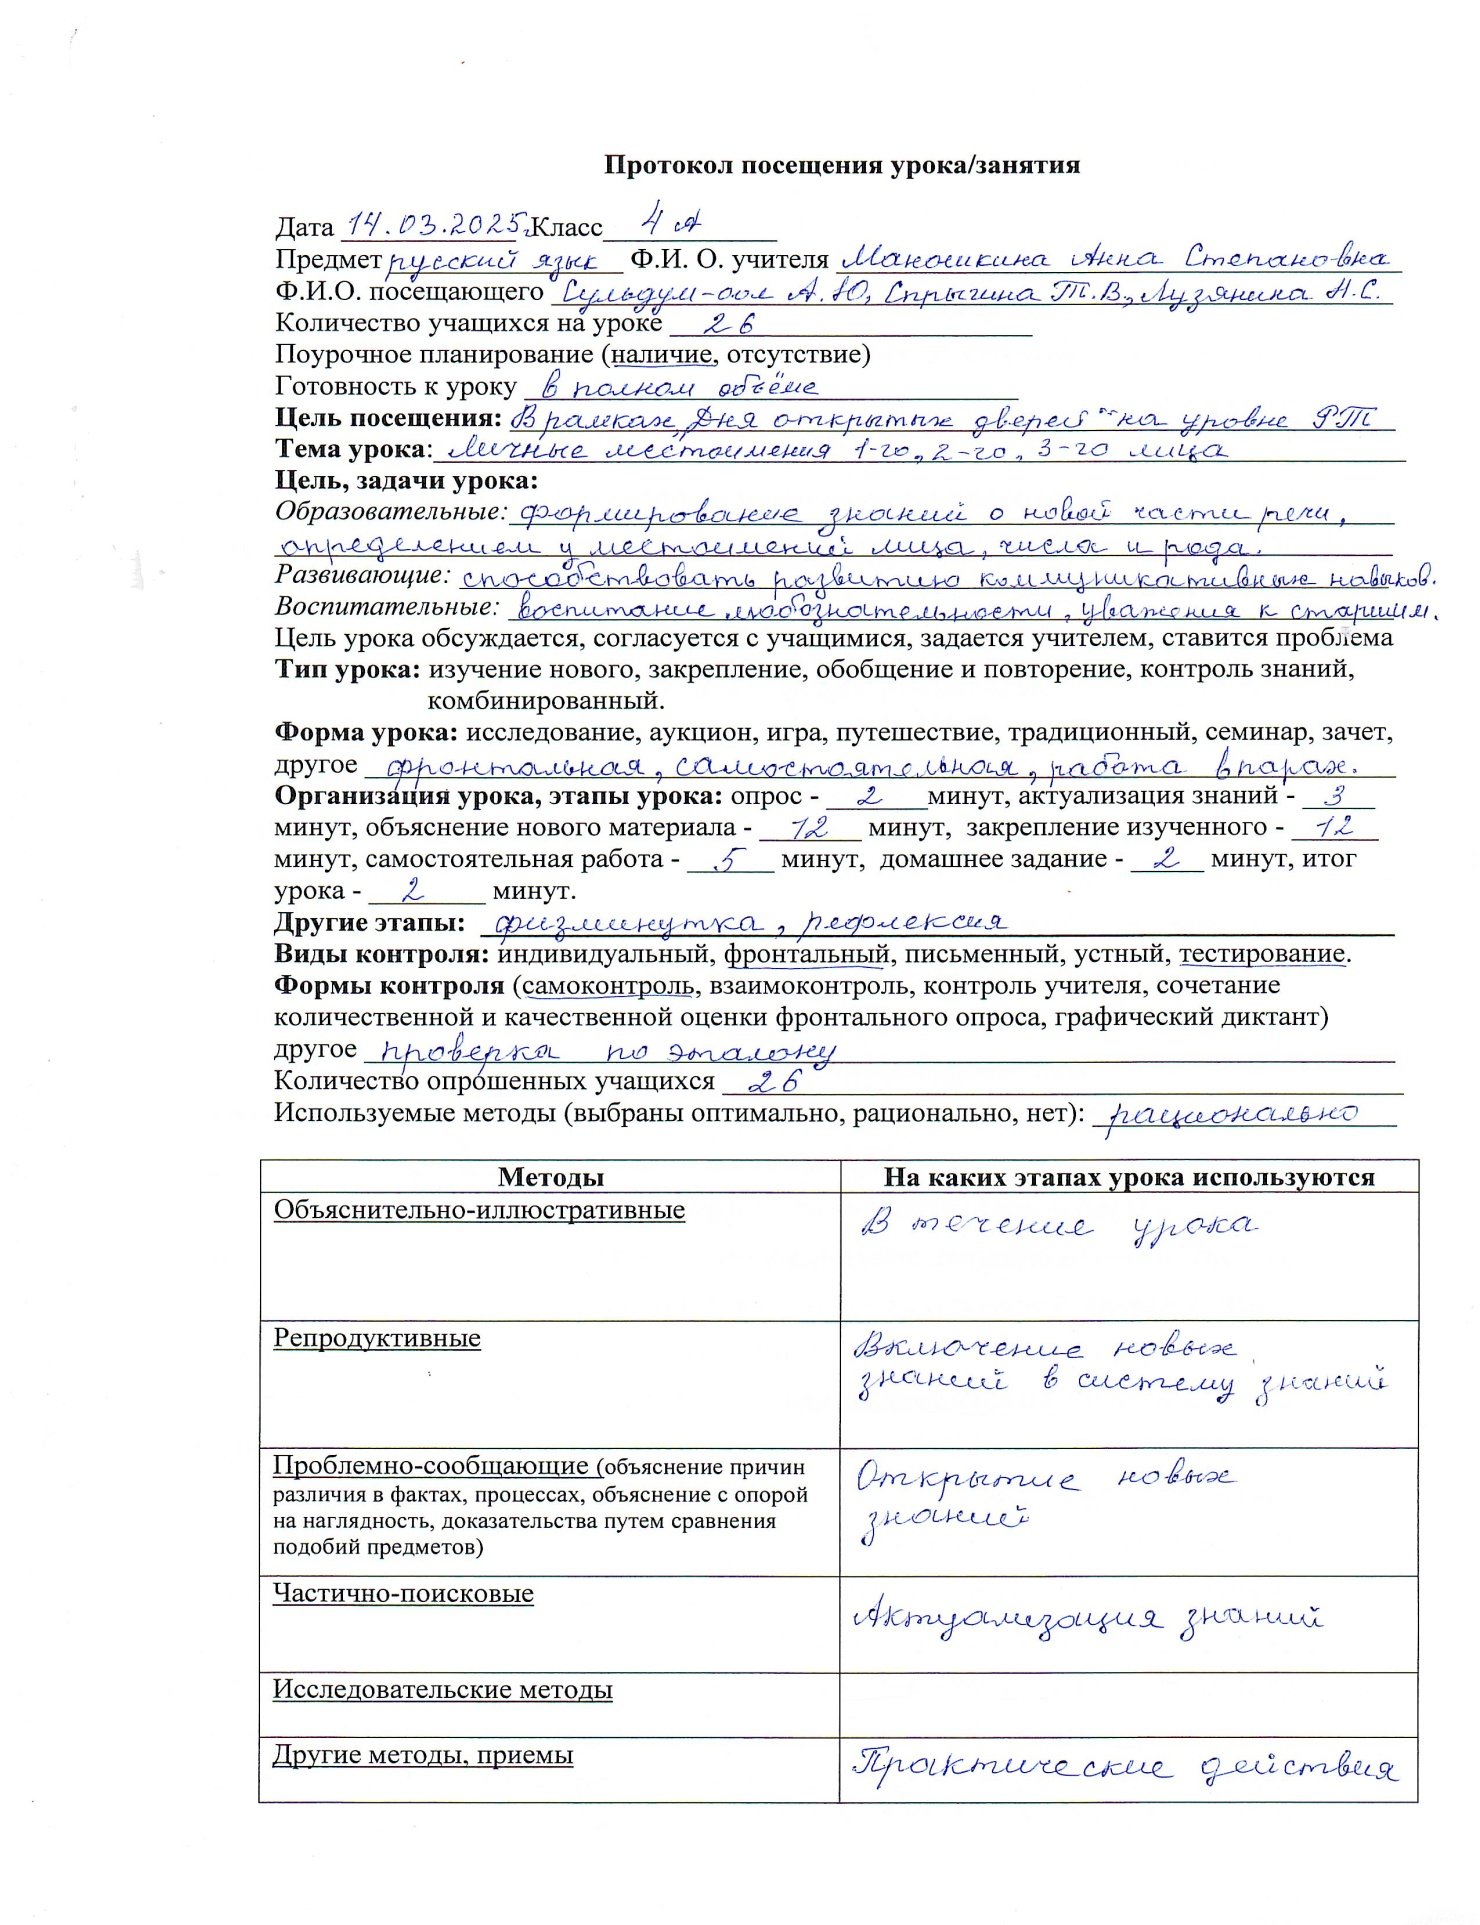 Протокол посещения урока/занятия
Дата 14.03.2025г. Класс 4 А
Предмет русский язык Ф.И. О. учителя Маношкина Анна Степановна
Ф.И.О. посещающего Сульдум-оол А.Ю, Спрыгина Т.В., Лузянина Н.С.
Количество учащихся на уроке 26
Поурочное планирование (наличие, отсутствие)
Готовность к уроку в полном объёме
Цель посещения: В рамках „Дня открытых дверей" на уровне РТ
Тема урока: Личные местоимения 1-го, 2-го, 3-го лица
Цель, задачи урока:
Образовательные: формирование знаний о новой части речи,
определением у местоимений лица, числа и рода.
Развивающие: способствовать развитию коммуникативных навыков.
Воспитательные: воспитание любознательности, уважения к старшим.
Цель урока обсуждается, согласуется с учащимися, задается учителем, ставится проблема
Тип урока: изучение нового, закрепление, обобщение и повторение, контроль знаний,
комбинированный.
Форма урока: исследование, аукцион, игра, путешествие, традиционный, семинар, зачет,
другое фронтальная, самостоятельная, работа в парах.
Организация урока, этапы урока: опрос - 2 минут, актуализация знаний - 3
минут, объяснение нового материала - 12 минут, закрепление изученного - 12
минут, самостоятельная работа - 5 минут, домашнее задание - 2 минут, итог
урока - 2 минут.
Другие этапы: физминутка, рефлексия
Виды контроля: индивидуальный, фронтальный, письменный, устный, тестирование.
Формы контроля (самоконтроль, взаимоконтроль, контроль учителя, сочетание
количественной и качественной оценки фронтального опроса, графический диктант)
другое проверка по эталону
Количество опрошенных учащихся 26
Используемые методы (выбраны оптимально, рационально, нет): рационально
Методы На каких этапах урока используются
Объяснительно-иллюстративные В течение урока
Репродуктивные Включение новых
знаний в систему знаний
Проблемно-сообщающие (объяснение причин Открытие новых
различия в фактах, процессах, объяснение с опорой знаний
на наглядность, доказательства путем сравнения
подобий предметов)
Частично-поисковые Актуализация знаний
Исследовательские методы
Другие методы, приемы Практические действия